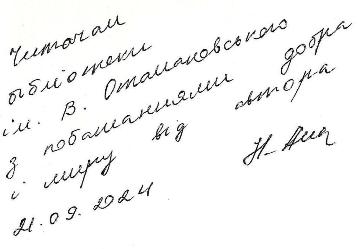 Читачам
бібліотеки
ім. В. Отамановського
з побажаннями добра
і миру від автора
21.09.2024